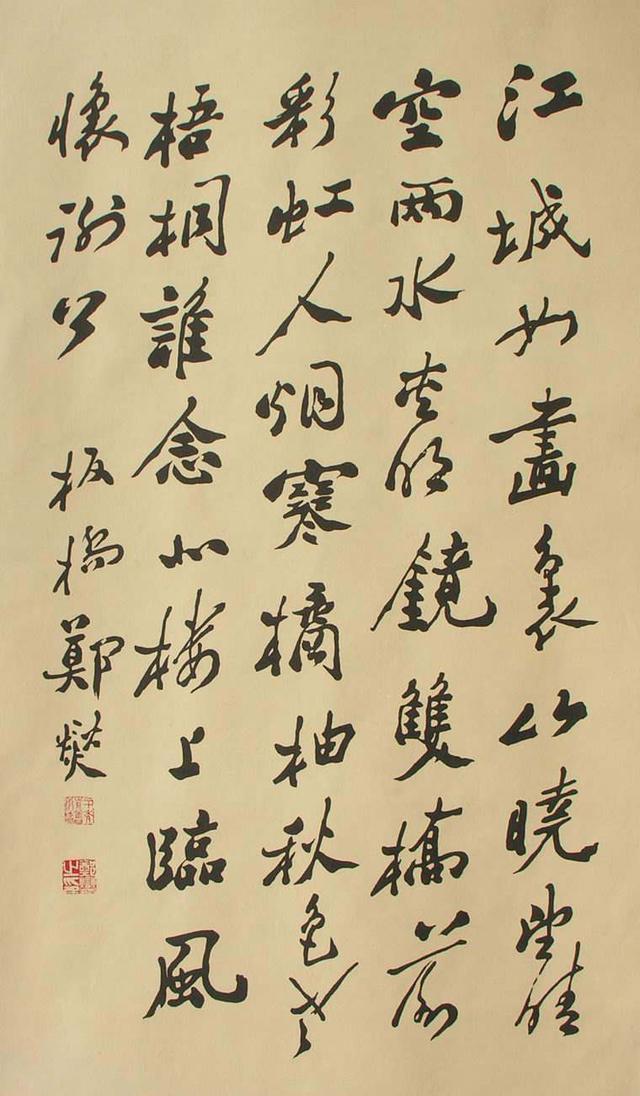 江城如畫裏山曉望晴
空兩水夾明鏡雙橋落
彩虹人烟寒橘柚秋色老
梧桐誰念北樓上臨風
懷謝公 板橋鄭燮
鄭燮之印